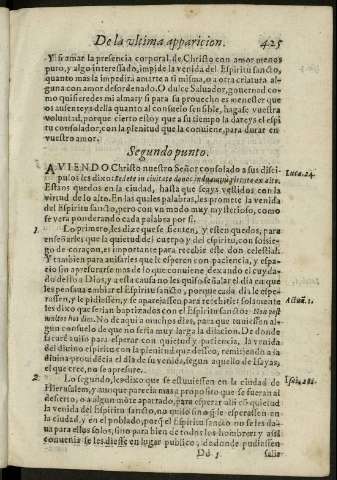 De la vltima apparicion. 425
Y si amar la presencia corporal, de Christo con amor menos
puro, y algo interessado, impide la venida del Espiritu sancto,
quanto mas la impedirá amarte a ti misma, o a otra criatura al-
guna con amor desordenado. O dulce Saluador, gouernad co-
mo quisieredes mi alma: y si para su prouecho es menester que
os ausenteys della quanto al consuelo sensible, hagase vuestra
voluntad, porque cierto estoy que a su tiempo la dareys el espi
tu consolador, con la plenitud que la conuiene, para durar en
vuestro amor.
Segundo punto.
AVIENDO Christo nuestro Señor consolado a sus disci-
pulos les dixo: Sedete in ciuitate donec induamini virtute ex alto. Luca. 24.
Estaos quedos en la ciudad, hasta que seays vestidos con la
virtud de lo alto. En las quales palabras, les promete la venida
del Espiritu sancto, pero con vn modo muy mysterioso, como
se vera ponderando cada palabra por si.
1. Lo primero, les dize que se sienten, y esten quedos, para
enseñarles que la quietud del cuerpo y del espiritu, con sossie-
go de coraçon, es importante para recebir este don celestial.
Y tambien para auisarles que le esperen con paciencia, y espa-
cio sin apresurarse mas de lo que conuiene dexando el cuyda-
do desto a Dios, y a esta causa no les quiso señalar el dia en que
les pensaua embiar el Espiritu sancto, porque cada dia le espe-
rassen, y le pidiessen, y se aparejassen para recebirle: solamente
les dixo que serian baptizados con el Espiritu sancto: Non post Actuũ. 1.
multos hos dies. No de aqui a muchos dias, para que tuuiessen al-
gun consuelo de que no seria muy larga la dilacion. De donde
sacaré yo llo para esperar con quietud y paciencia, la venida
del diuino espiritu con la plenitud que desseo, remitiendo a su
diuina prouidencia el dia de su venida, segun aquello de Isayas,
el que cree, no se apresure. Isai. 28.
2. Lo segundo, les dixo que se estuuiessen en la ciudad de
Hierusalem, y aunque parecia mas a proposito que se fueran al
desierto, o a algun môte apartado, para esperar alli con quietud
la venida del Espiritu sancto, no quiso sino que le esperassen en
la ciudad, y en el poblado, porque el Espiritu sancto no se les da-
ua para ellos solos, sino para bien de todos los hombres: y assi
conuenia se les diesse en lugar publico, de donde pudiessen
Dd 5 salir